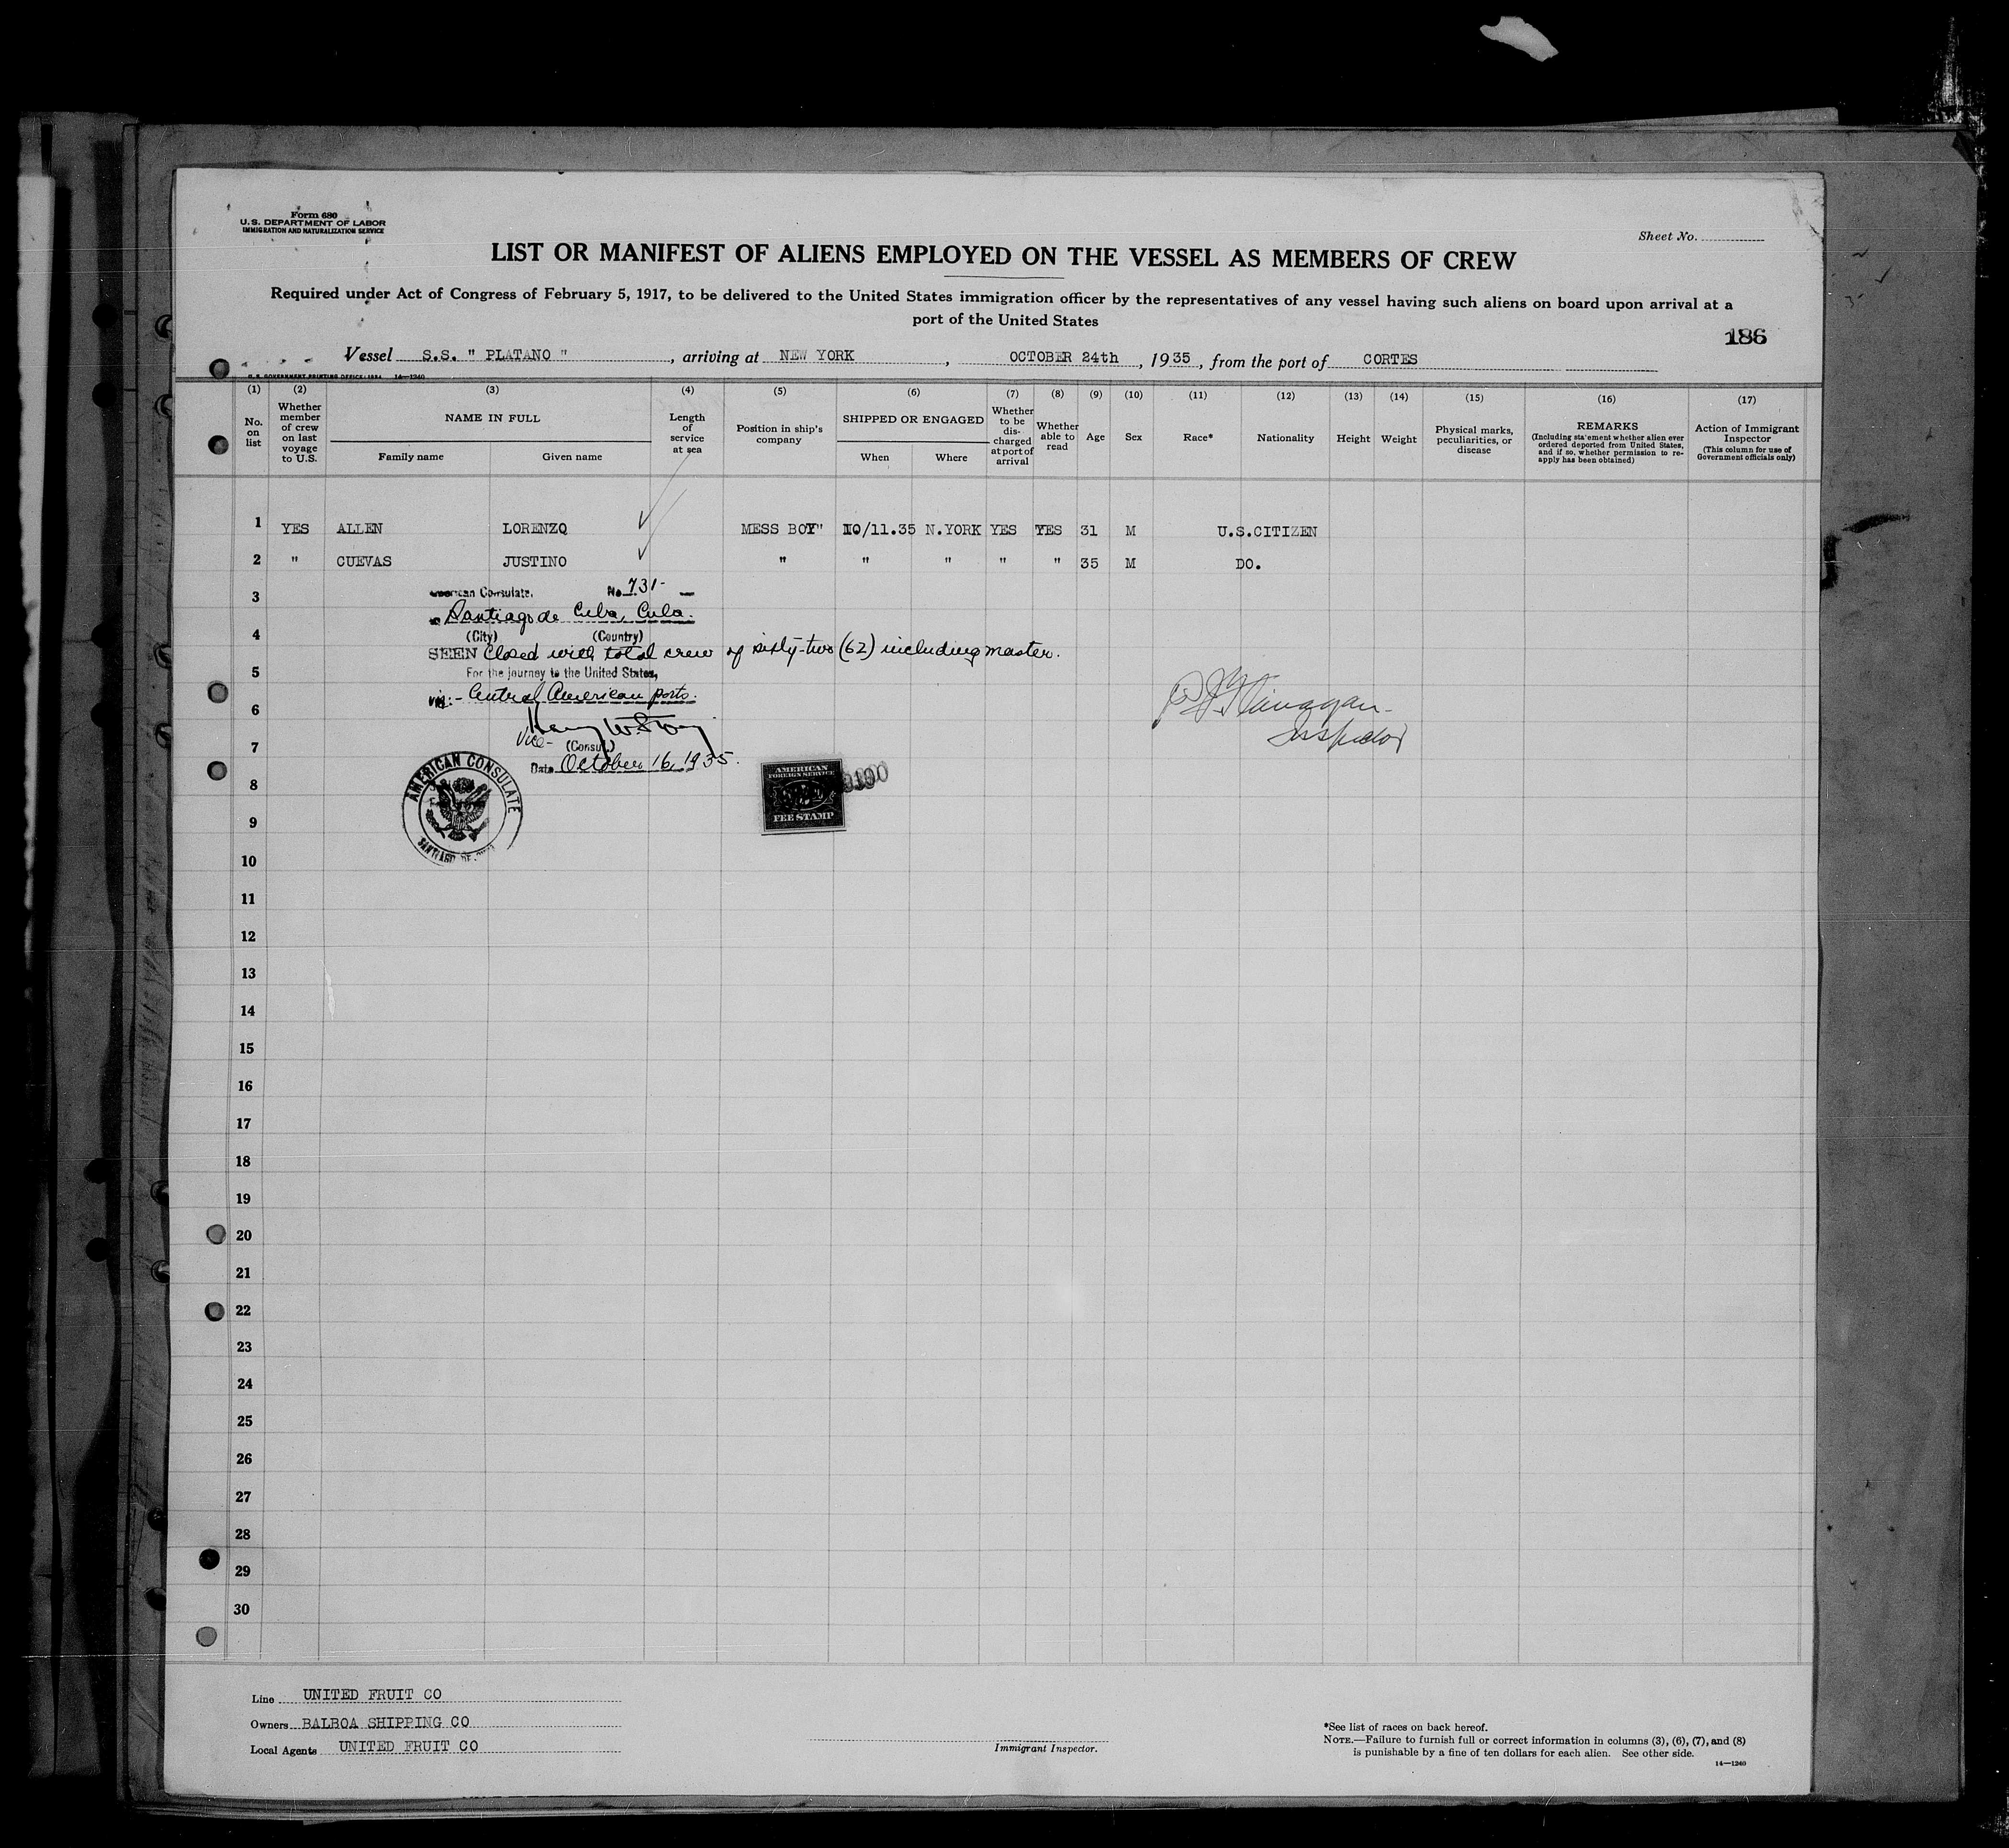 Form 680
U.S. DEPARTMENT OF LABOR
IMMIGRATION AND NATURALIZATION SERVICE
Sheet No.
LIST OR MANIFEST OF ALIENS EMPLOYED ON THE VESSEL AS MEMBERS OF CREW
Required under Act of Congress of February 5, 1917, to be delivered to the United States immigration officer by the representatives of any vessel having such aliens on board upon arrival at a
port of the United States
186
Vessel S.S. " PLATANO ", arriving at NEW YORK, OCTOBER 24th, 1935, from the port of CORTES
U. S. GOVERNMENT PRINTING OFFICE: 1934 14—1240
(1) (2) (3) (4) (5) (6) (7) (8) (9) (10) (11) (12) (13) (14) (15) (16) (17)
No. on list
Whether member of crew on last voyage to U.S.
NAME IN FULL
Family name
Given name
Length of service at sea
Position in ship's company
SHIPPED OR ENGAGED
When
Where
Whether to be discharged at port of arrival
Whether able to read
Age
Sex
Race*
Nationality
Height
Weight
Physical marks, peculiarities, or disease
REMARKS
(Including statement whether alien ever ordered deported from United States, and if so, whether permission to re-apply has been obtained)
Action of Immigrant Inspector
(This column for use of Government officials only)
1 YES ALLEN LORENZO MESS BOY" 10/11.35 N.YORK YES YES 31 M U.S.CITIZEN
2 " CUEVAS JUSTINO " " " " " 35 M DO.
3
American Consulate, No. 731-
Santiago de Cuba, Cuba.
4
(City) (Country)
SEEN Closed with total crew of sixty-two (62) including master.
5
For the journey to the United States,
via:- Central American ports.
6
Flanagan-
Inspector
7
Vice- (Consul)
Date October 16, 1935.
8
AMERICAN CONSULATE
SANTIAGO DE
AMERICAN
FOREIGN SERVICE
FEE STAMP
9
10
11
12
13
14
15
16
17
18
19
20
21
22
23
24
25
26
27
28
29
30
Line UNITED FRUIT CO
Owners BALBOA SHIPPING CO
Local Agents UNITED FRUIT CO
Immigrant Inspector.
*See list of races on back hereof.
NOTE.—Failure to furnish full or correct information in columns (3), (6), (7), and (8)
is punishable by a fine of ten dollars for each alien. See other side.
14—1240